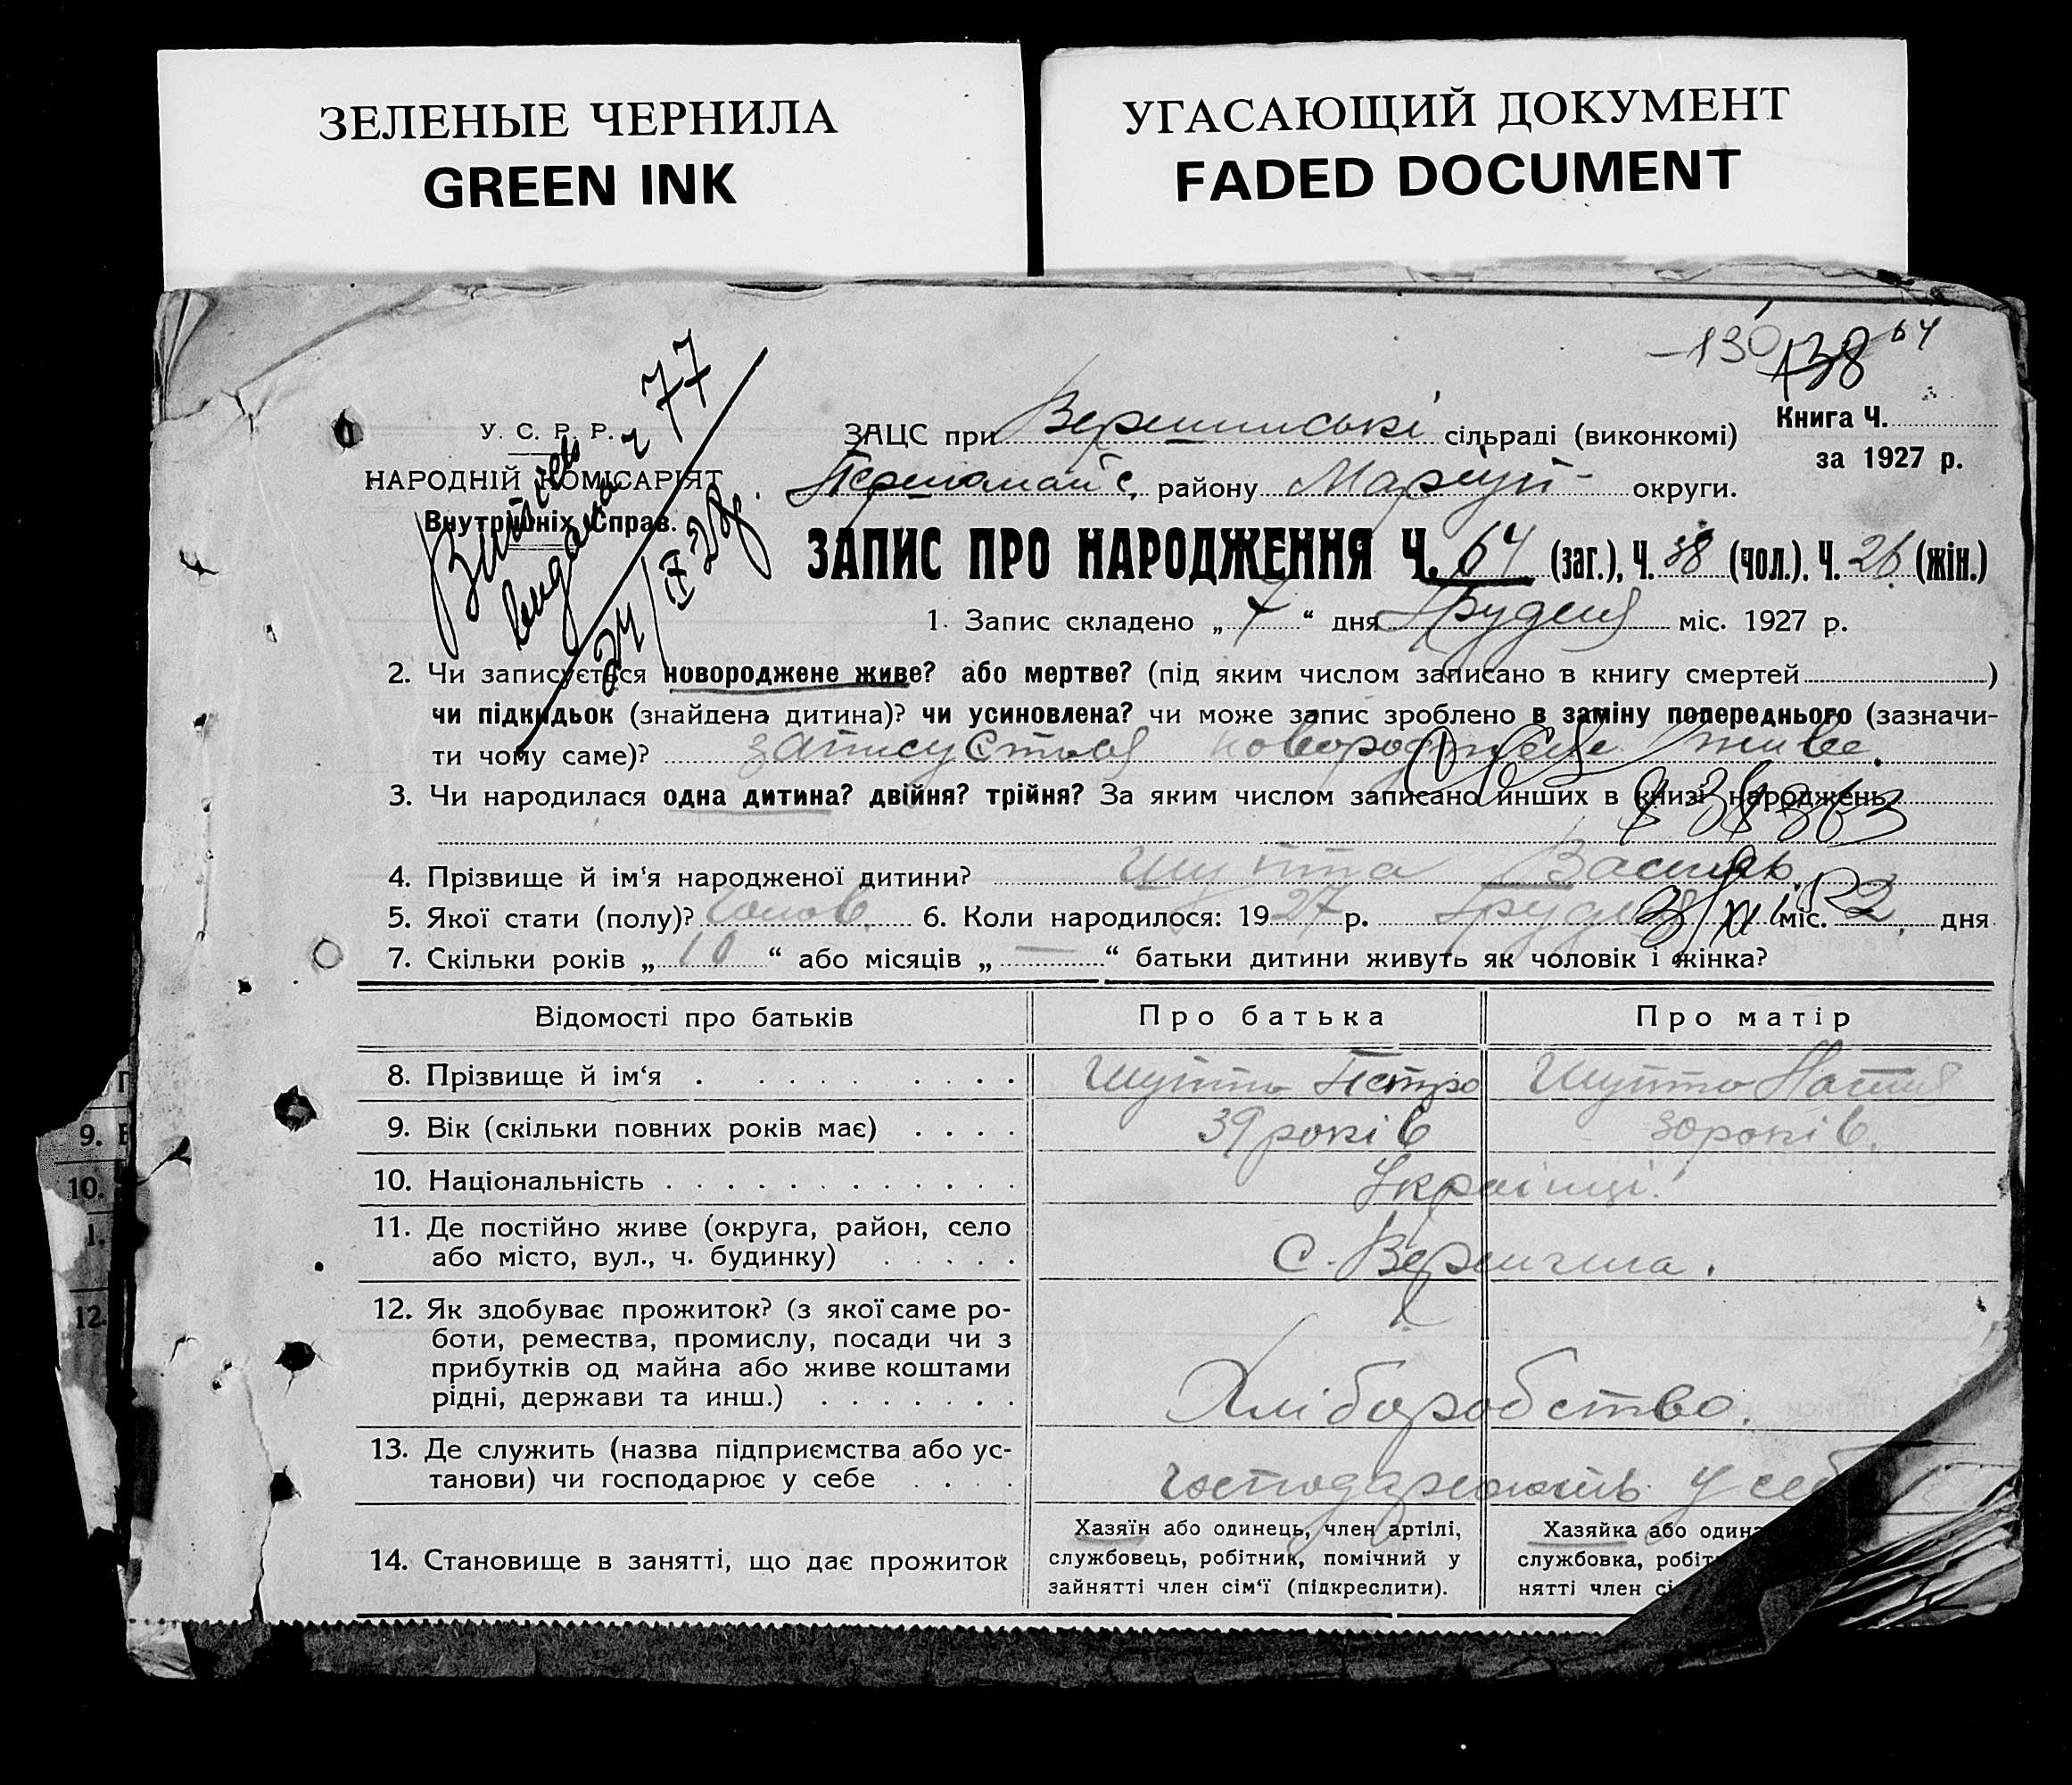 ЗЕЛЕНЫЕ ЧЕРНИЛА
GREEN INK
УГАСАЮЩИЙ ДОКУМЕНТ
FADED DOCUMENT
-130 138 64
У. С. Р. Р.
НАРОДНІЙ КОМІСАРІЯТ
Внутрішніх Справ.
77
ЗАЦС при сільраді (виконкомі)
Книга Ч.
за 1927 р.
Першомайс. району Маріуп- округи.
ЗАПИС ПРО НАРОДЖЕННЯ Ч. 64 (заг.), Ч. 38 (чол.). Ч. 26 (жін.)
1. Запис складено „ 7 “ дня Грудня міс. 1927 р.
2. Чи записується новороджене живе? або мертве? (під яким числом записано в книгу смертей )
чи підкидьок (знайдена дитина)? чи усиновлена? чи може запис зроблено в заміну попереднього (зазначи-
ти чому саме)? записуєтьця новороджене живе.
3. Чи народилася одна дитина? двійня? трійня? За яким числом записано инших в книзі народжень
4. Прізвище й ім‘я народженої дитини? Шупта Василь.
5. Якої стати (полу)? чолов. 6. Коли народилось: 1927 р. Грудня міс. 2 дня
7. Скільки років „ 10 “ або місяців „ — “ батьки дитини живуть як чоловік і жінка?
Відомості про батьків Про батька Про матір
8. Прізвище й ім‘я Шупто Петро Шупто Настя
9. Вік (скільки повних років має) 39 років 30 років.
10. Національність Українці.
11. Де постійно живе (округа, район, село
або місто, вул., ч. будинку) с.
12. Як здобуває прожиток? (з якої саме ро-
боти, ремества, промислу, посади чи з
прибутків од майна або живе коштами
рідні, держави та инш.) Хліборобство.
13. Де служить (назва підприємства або ус-
танови) чи господарює у себе господарюють у себ
14. Становище в занятті, що дає прожиток
Хазяїн або одинець, член артілі,
службовець, робітник, помічний у
зайнятті член сім‘ї (підкреслити).
Хазяйка або один
службовка, робіт
нятті член сі
9. В
10.
1.
12.